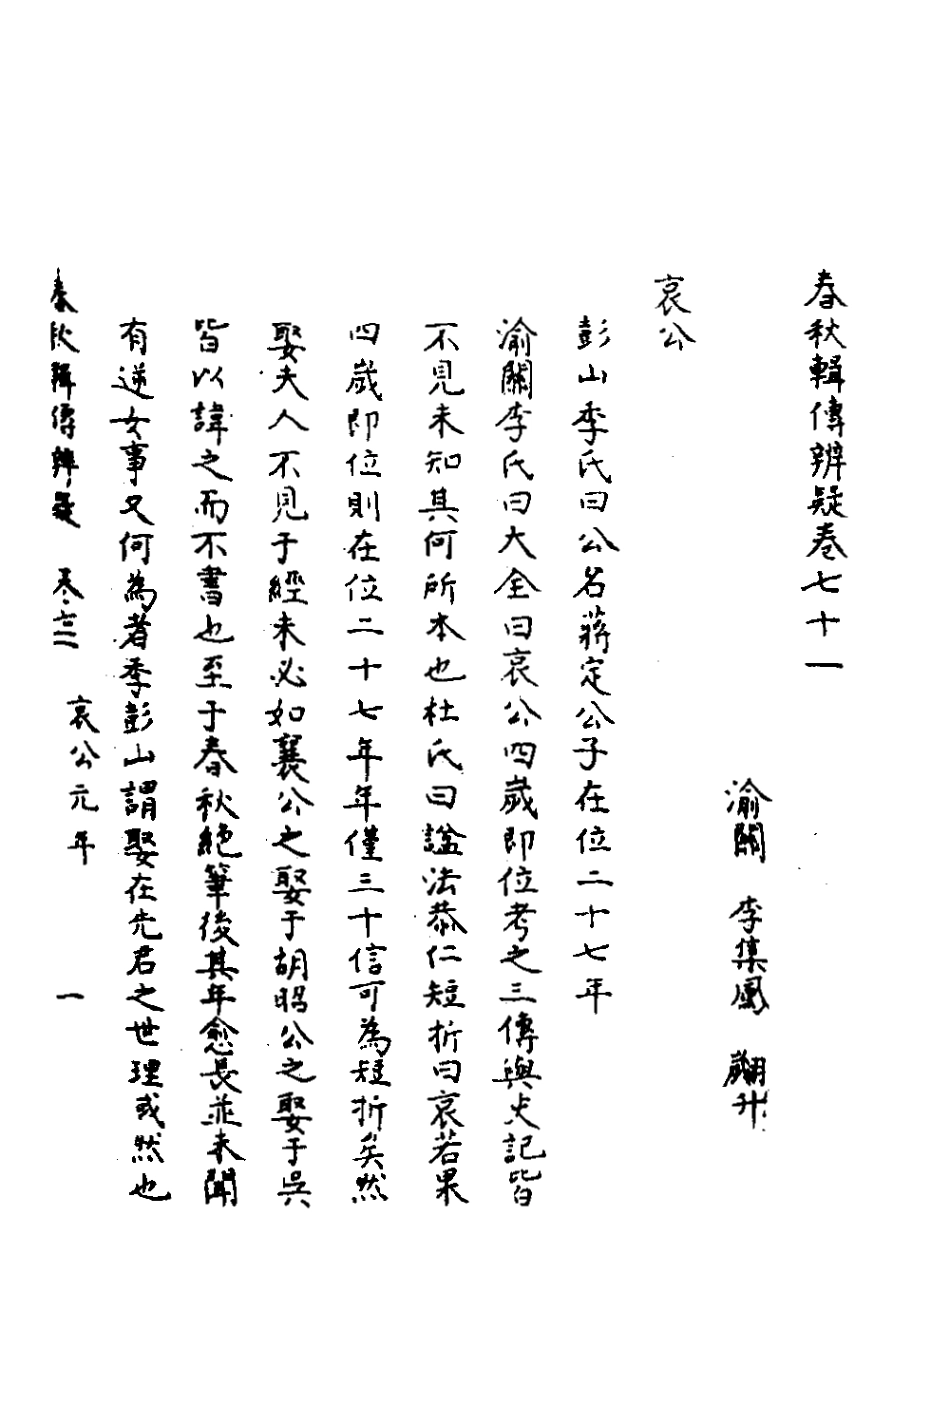 春秋輯傳辨疑卷七十一
渝關 李集鳳 翽升
哀公
彭山季氏曰公名蔣定公子在位二十七年
渝關李氏曰大全曰哀公四歲即位考之三傳與史記皆
不見未知其何所本也杜氏曰諡法恭仁短折曰哀若果
四歲即位則在位二十七年年僅三十信可為短折矣然
娶夫人不見于經未必如襄公之娶于胡昭公之娶于吳
皆以諱之而不書也至于春秋絕筆後其年愈長並未聞
有逆女事又何為者季彭山謂娶在先君之世理或然也
春秋輯傳辨疑 卷 哀公元年 一